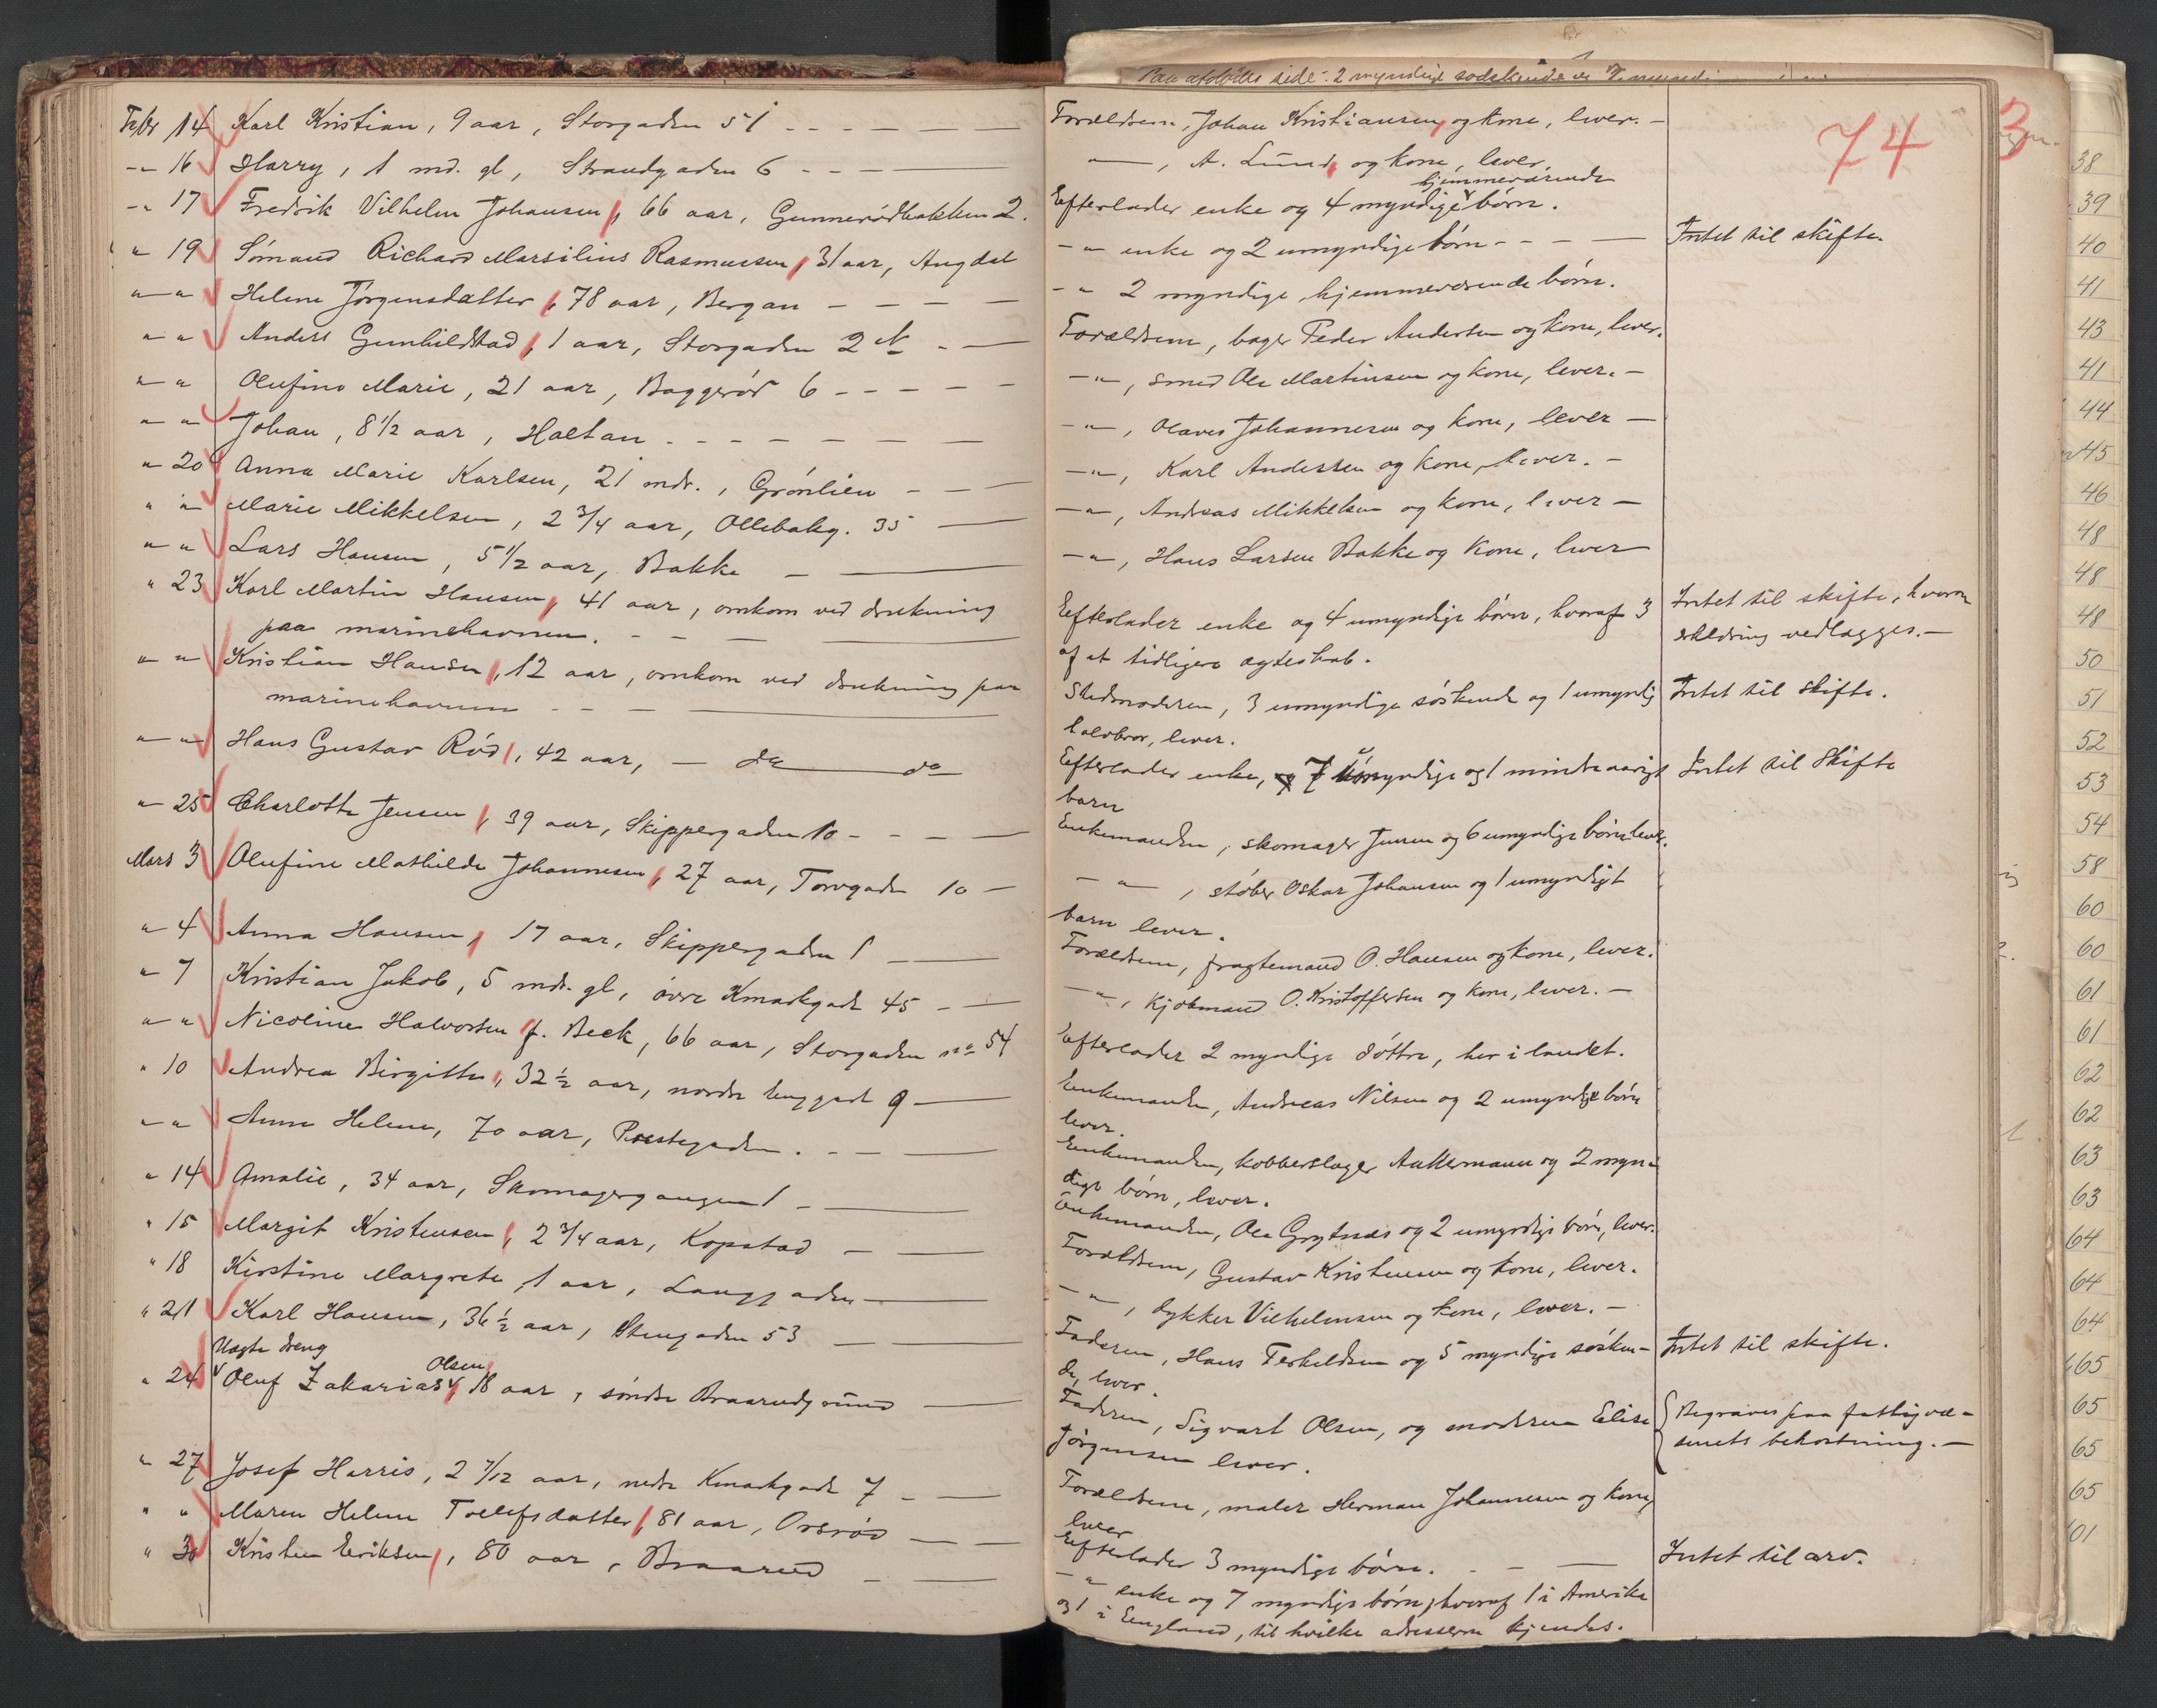 Febr 14 Karl Kristian, 9 aar, Storgaden 51 - - -
-„ 16 Harry, 1 md. gl, Strandgaden 6 - - -
-„ 17 Fredrik Vilhelm Johansen, 66 aar, Gunnerödbakken 2.
„ 19 Sömand Richard Marsilius Rasmussen, 31 aar, Angdal
„ „ Helene Jörgensdatter, 78 aar, Bergan - - - -
„ „ Anders Gunhildstad, 1 aar, Storgaden 2 - -
„ „ Olufine Marie, 21 aar, Baggeröd 6 - - - -
„ „ Johan, 8 1/2 aar, Holtan - - - - - -
„ 20 Anna Marie Karlsen, 21 mdr., Grönlien - - -
„ „ Marie Mikkelsen, 2 3/4 aar, Ollebakg. 35 -
„ „ Lars Hansen, 5 1/2 aar, Bakke - -
„ 23 Karl Martin Hansen, 41 aar, omkom ved drukning
paa marinehavnen. - - -
„ „ Kristian Hansen, 12 aar, omkom ved drukning paa
marinehavnen - - -
„ „ Hans Gustav Röd, 42 aar, - do do
„ 25 Charlotte Jensen, 39 aar, Skippergaden 10 - - - -
Mars 3 Olufine Mathilde Johannesen, 27 aar, Torvgaden 10 -
„ 4 Anna Hansen, 17 aar, Skippergaden 1 - -
„ 7 Kristian Jakob, 5 mdr. gl, övre Kmarkgade 45 - -
„ „ Nicoline Halvorsen f. Beck, 66 aar, Storgaden no 54
„ 10 Andrea Birgitte, 32 1/2 aar, nordre lenggade 9 -
„ „ Anne Helene, 70 aar, Prestegaden. - -
„ 14 Amalie, 34 aar, Skomagergangen 1 - -
„ 15 Margit Kristensen, 2 3/4 aar, Kopstad - -
„ 18 Kirstine Margrete, 1 aar, Langgaden -
„ 21 Karl Hansen, 36 1/2 aar, Stengaden 53 - -
Vægte dreng
Olsen
„ 24 Oluf Zakarias, 18 aar, söndre Braarudgrund -
„ 27 Josef Harris, 2 7/12 aar, nedre Kmarkgade 7 - -
„ „ Maren Helene Tollefsdatter, 81 aar, Oreröd - -
„ 30 Kristen Eriksen, 80 aar, Braarud - -
Paa afdödes side: 2 myndige sødskende
74
Forældrene, Johan Kristiansen og kone, lever. -
-„-, A. Lund, og kone, lever.
hjemmeværende
Efterlader enke og 4 myndige börn.
-„ enke og 2 umyndige börn - - - Intet til skifte.
-„ 2 myndige, hjemmeværende börn.
Forældrene, bager Peder Andersen og kone, lever.
-„-, smed Ole Martinsen og kone, lever. -
-„-, Olaves Johannesen og kone, lever -
-„-, Karl Andersen og kone, lever. -
-„-, Andreas Mikkelsen og kone, lever -
-„-, Hans Larsen Bakke og kone, lever
Efterlader enke og 4 umyndige börn, hvoraf 3
af et tidligere ægteskab.
Intet til skifte, hvorom
erklæring vedlægges. -
Stedmoderen, 3 umyndige söskende og 1 umyndig
halvbror, lever.
Intet til skifte.
Efterlader enke, 7 umyndige og 1 mindreaarigt
barn
Intet til Skifte
Enkemanden, skomager Jensen og 6 umyndige börn lever.
-„-, stöber Oskar Johansen og 1 umyndigt
barn lever.
Forældrene, fragtemand O. Hansen og kone, lever.
-„-, kjöbmand O. Kristoffersen og kone, lever. -
Efterlader 2 myndige döttre, her i landet.
Enkemanden, Andreas Nilsen og 2 umyndige börn
lever.
Enkemanden, kobberslager Ankermann og 2 myn-
dige börn, lever.
Enkemanden, Ole Grytnæs og 2 umyndige börn, lever.
Forældrene, Gustav Kristensen og kone, lever.
-„-, dykker Vilhelmsen og kone, lever. -
Faderen, Hans Terkeldsen og 5 myndige sösken-
de, lever.
Intet til skifte.
Faderen, Sigvart Olsen, og moderen Elise
Jörgensen lever.
Begraves paa fattigvæ-
senets bekostning. -
Forældrene, maler Herman Johannesen og kone,
lever
Efterlader 3 myndige börn. - - Intet til arv.
-„ enke og 7 myndige börn, hvoraf 1 i Amerika
og 1 i England, til hvilke adresserne kjendes.
3
38
39
40
41
43
41
44
45
46
48
48
48
50
51
52
53
54
58
60
60
61
61
62
62
63
63
64
64
64
65
65
65
65
01